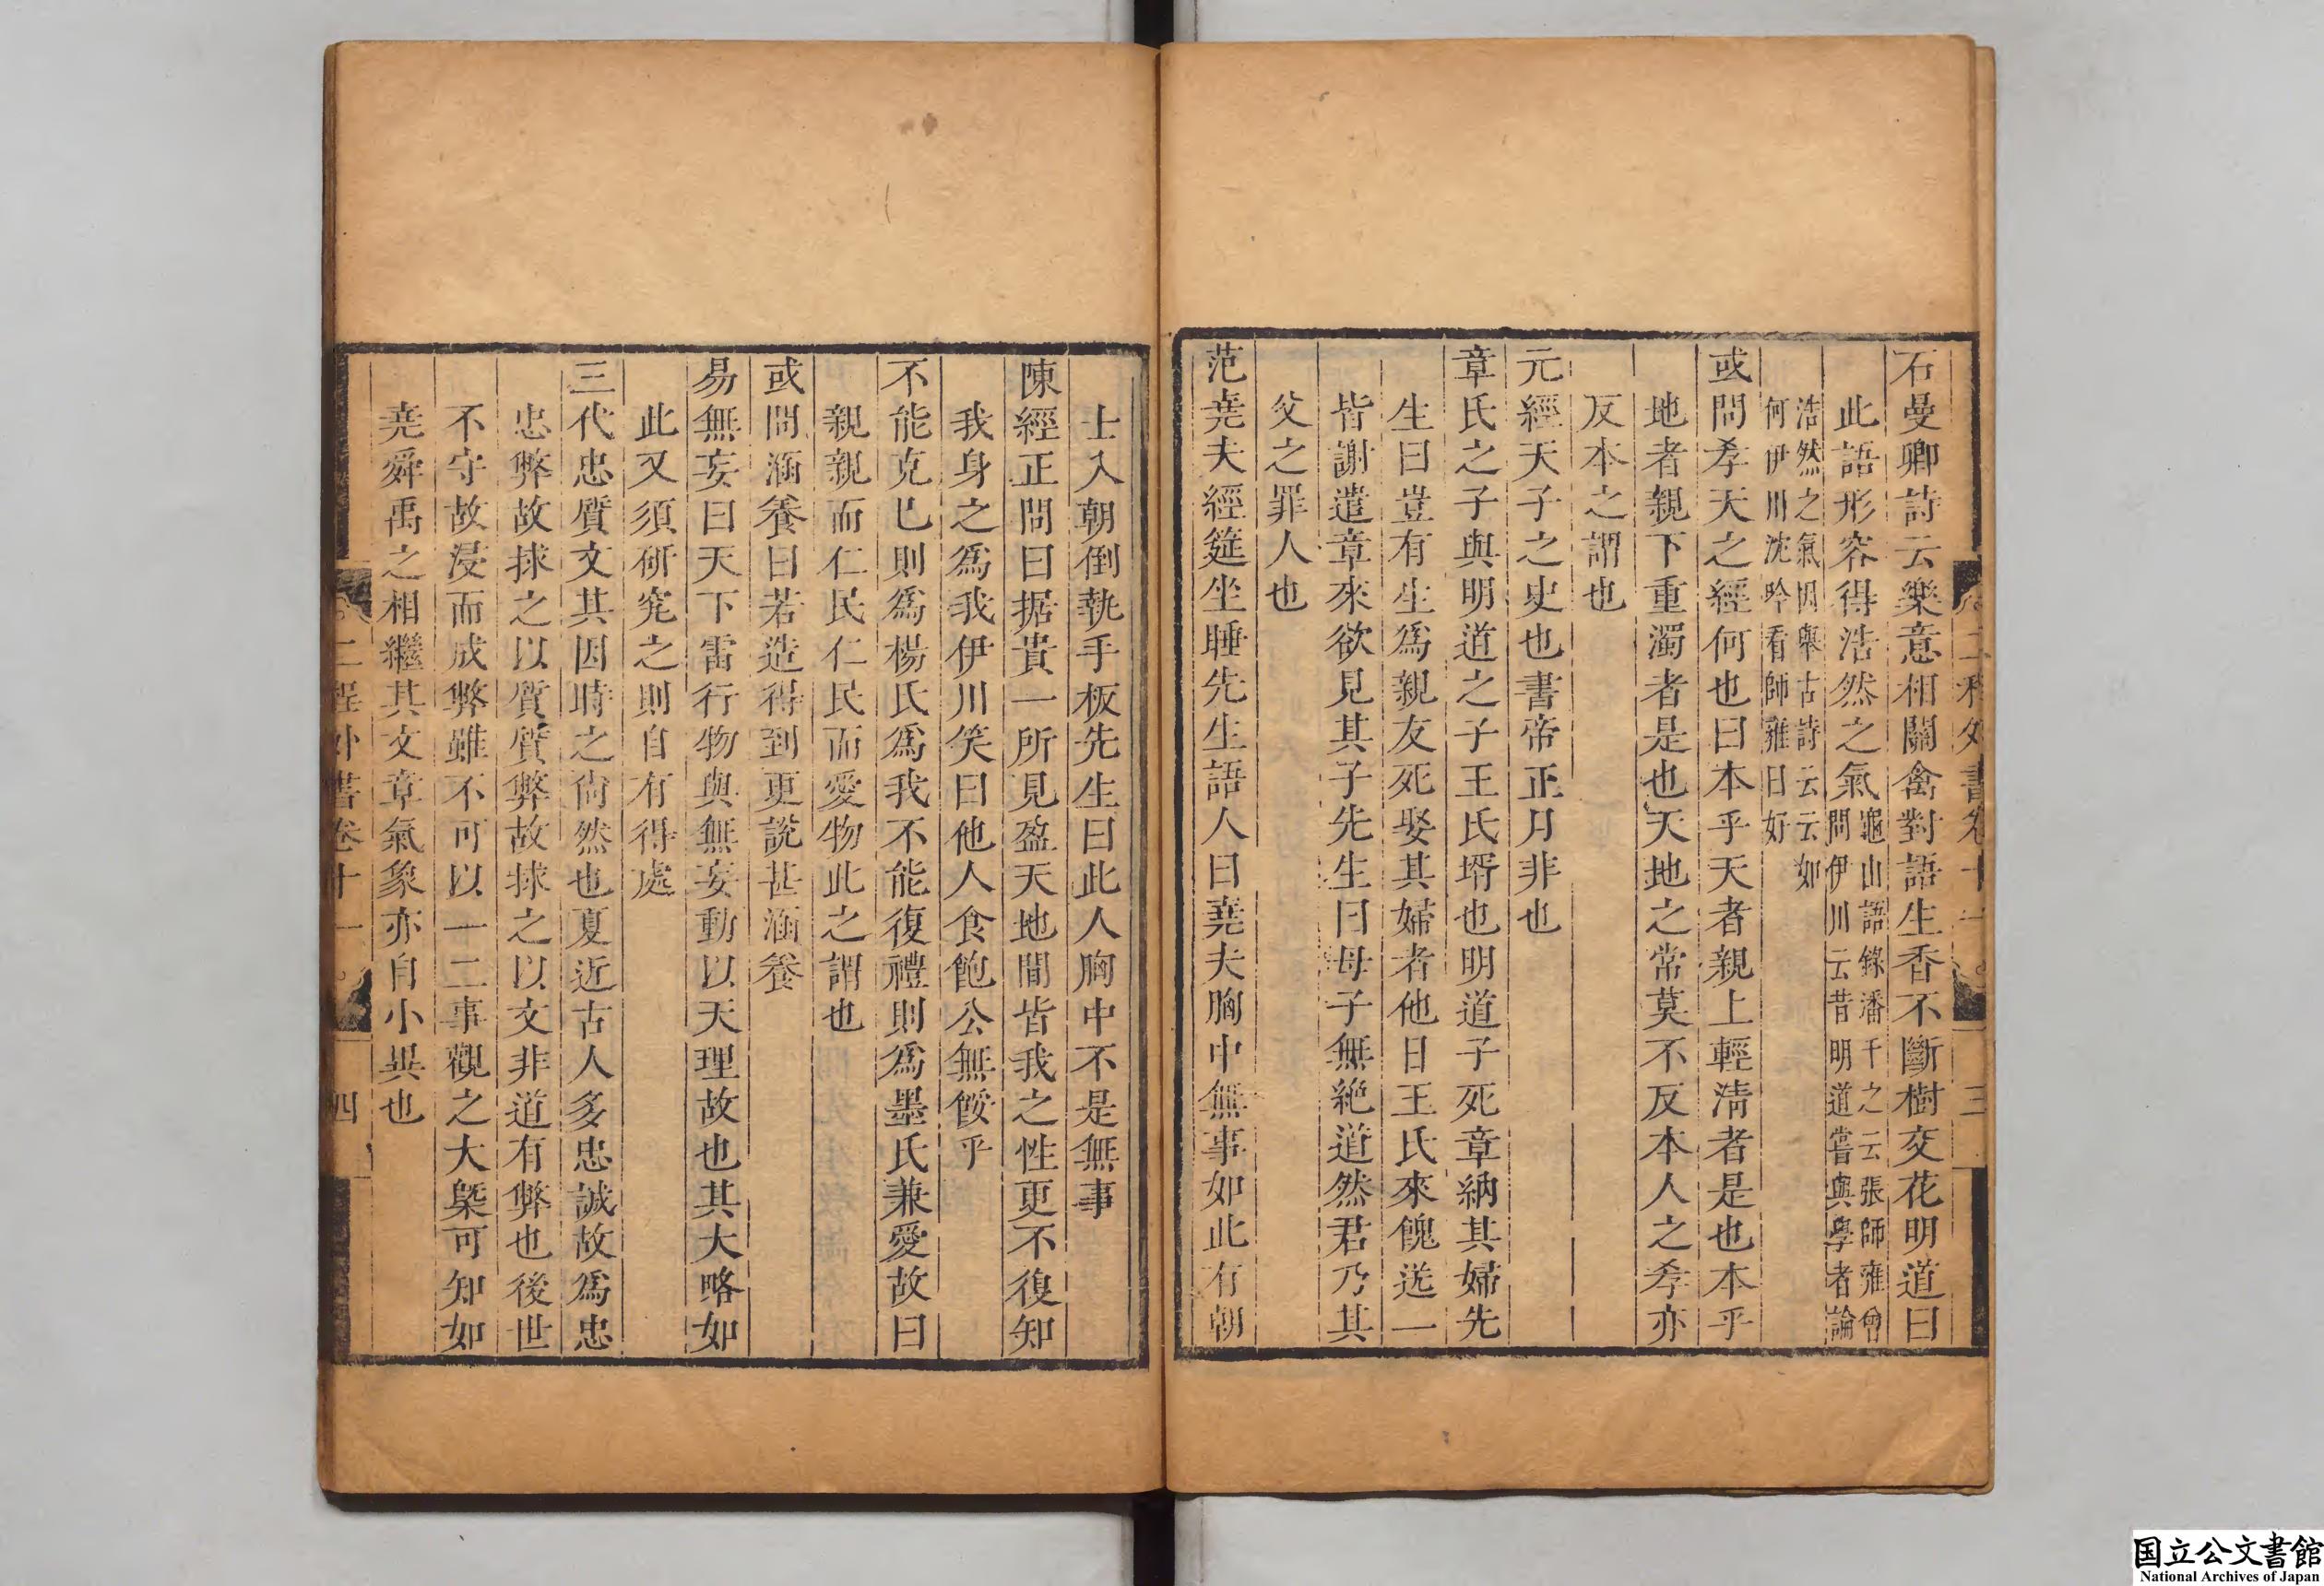 二程外書卷十一 三
石曼卿詩云樂意相關禽對語生香不斷樹交花明道曰
此語形容得浩然之氣龜山語錄潘千之云張師雍曾
問伊川云昔明道嘗與學者論
浩然之氣因舉古詩云云如
何伊川沈吟看師雍曰好
或問孝天之經何也曰本乎天者親上輕清者是也本乎
地者親下重濁者是也天地之常莫不反本人之孝亦
反本之謂也
元經天子之史也書帝正月非也
章氏之子與明道之子王氏壻也明道子死章納其婦先
生曰豈有生爲親友死娶其婦者他日王氏來餽送一
皆謝遣章來欲見其子先生曰母子無絕道然君乃其
父之罪人也
范堯夫經筵坐睡先生語人曰堯夫胸中無事如此有朝
士入朝倒執手板先生曰此人胸中不是無事
陳經正問曰据貴一所見盈天地間皆我之性更不復知
我身之爲我伊川笑曰他人食飽公無餒乎
不能克己則爲楊氏爲我不能復禮則爲墨氏兼愛故曰
親親而仁民仁民而愛物此之謂也
或問涵養曰若造得到更說甚涵養
易無妄曰天下雷行物與無妄動以天理故也其大略如
此又須研究之則自有得處
三代忠質文其因時之尙然也夏近古人多忠誠故爲忠
忠弊故捄之以質質弊故捄之以文非道有弊也後世
不守故浸而成弊雖不可以一二事觀之大槩可知如
堯舜禹之相繼其文章氣象亦自小異也
二程外書卷十一 四
国立公文書館
National Archives of Japan